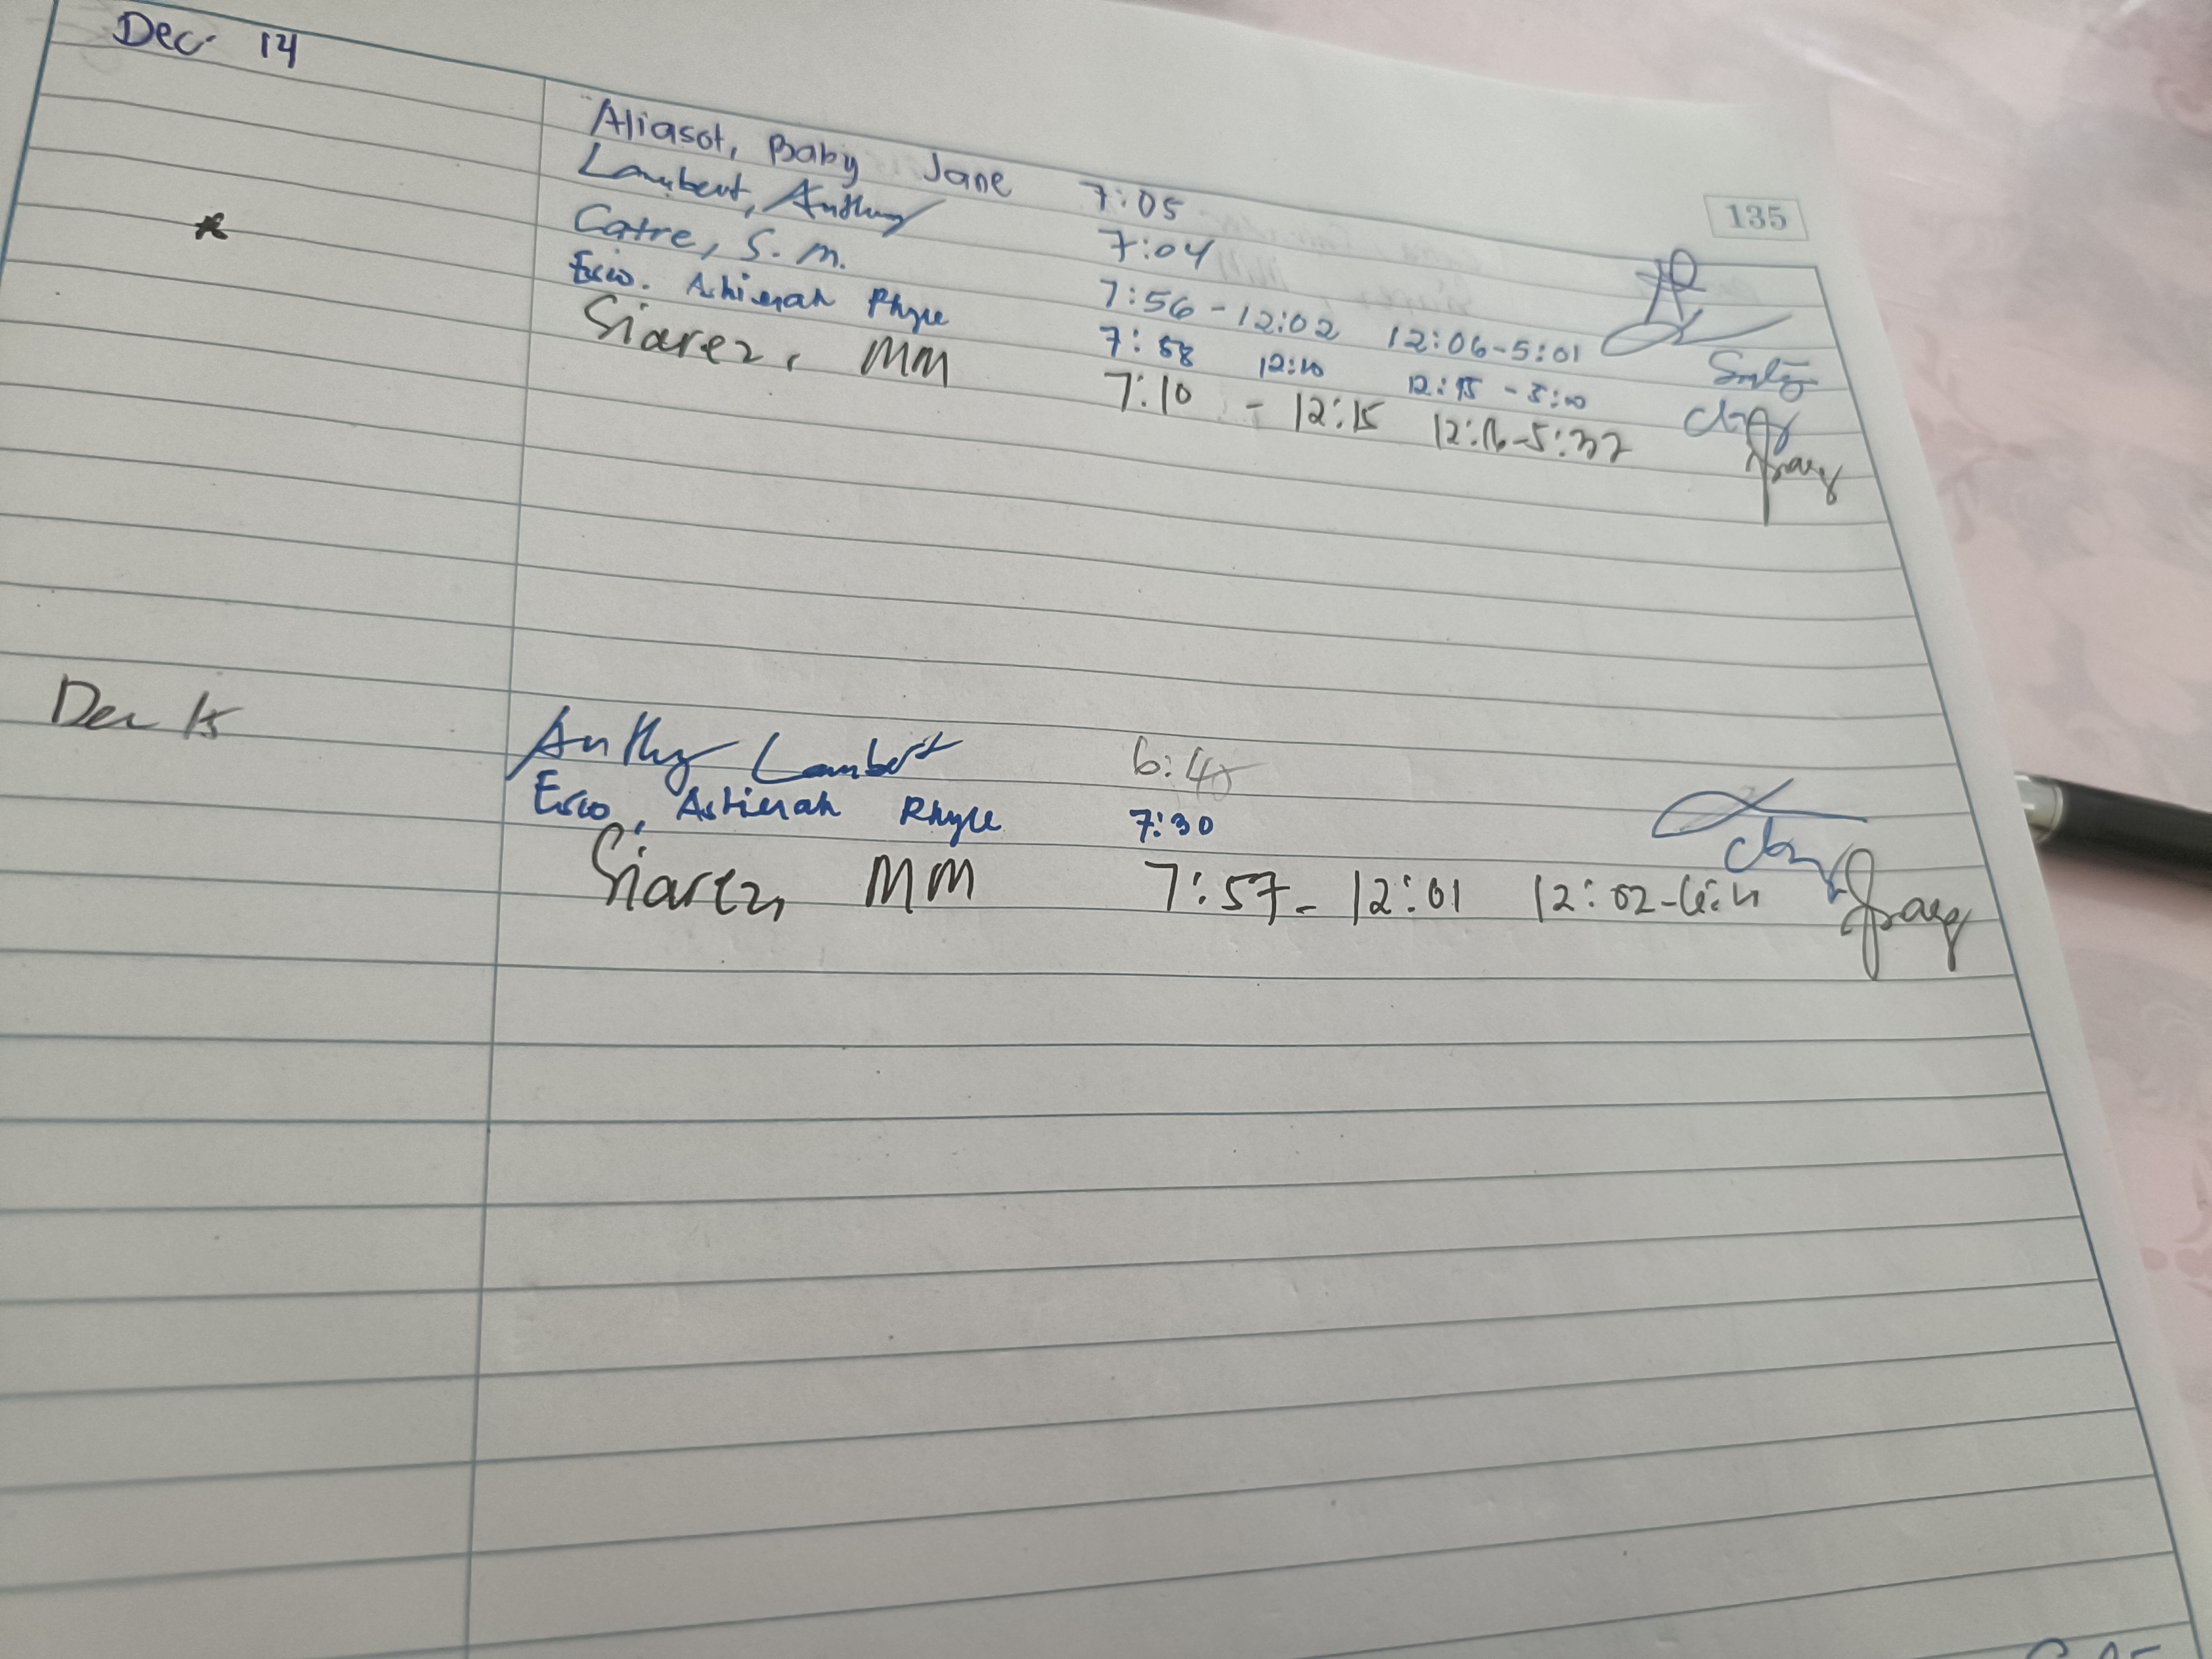 Dec. 14
135
Aliasot, Baby Jane 7:05
Lambert, Anthony 7:04
Catre, S. M. 7:56 - 12:02 12:06-5:01
Esco. Ashierah Rhyle 7:58 12:10 12:15 - 5:00
Siarez, MM 7:10 - 12:15 12:16-5:32
Dec 15
Anthony Lambert 6:45
Esco, Ashierah Rhyle 7:30
Siarez, MM 7:57- 12:01 12:02-